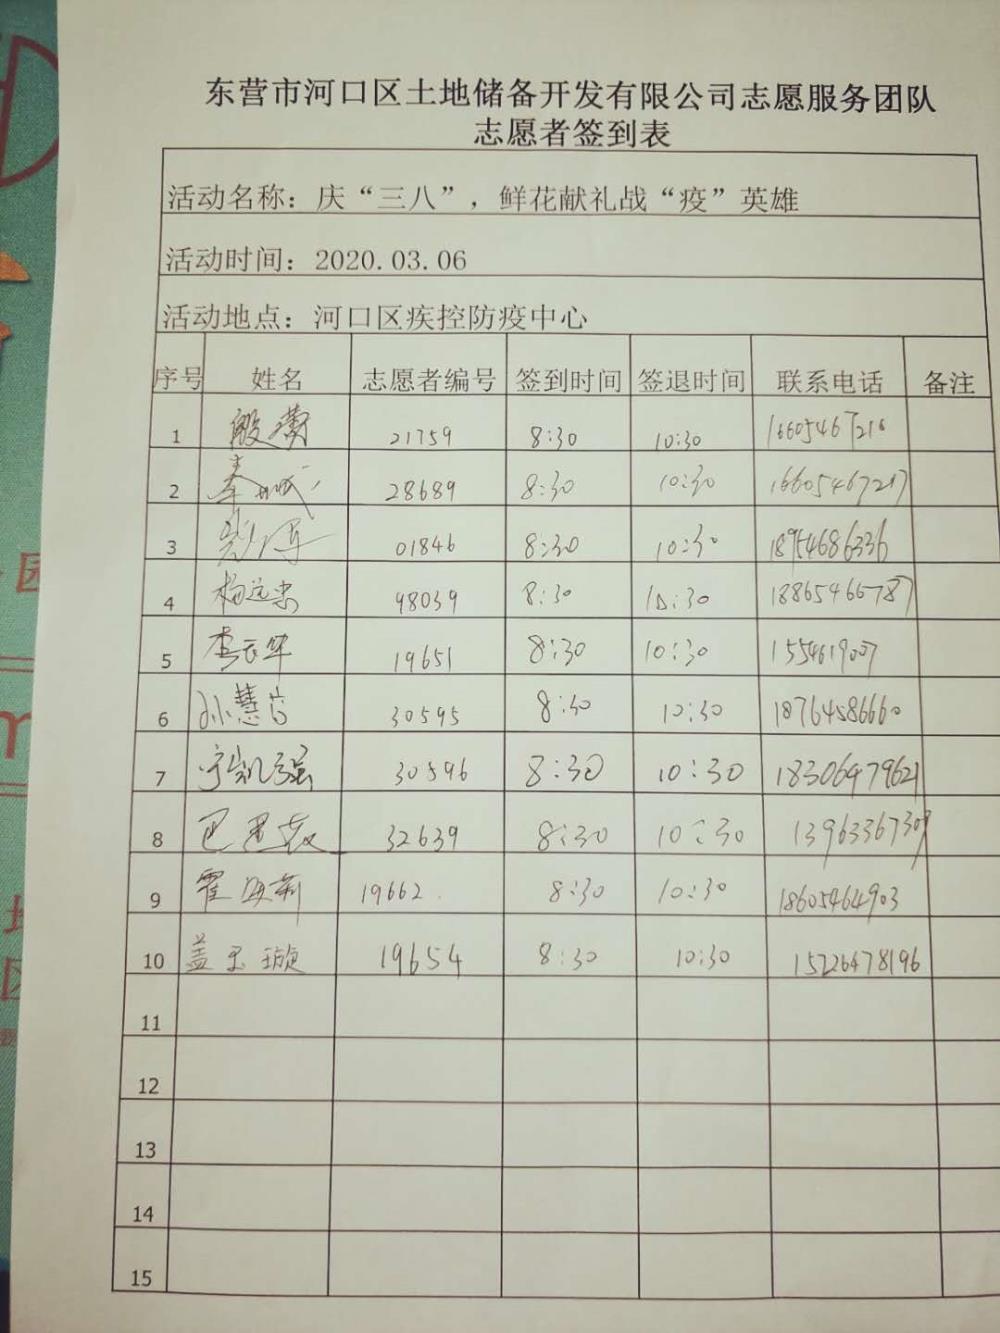 东营市河口区土地储备开发有限公司志愿服务团队
志愿者签到表
活动名称：庆“三八”，鲜花献礼战“疫”英雄
活动时间：2020.03.06
活动地点：河口区疾控防疫中心
序号 姓名 志愿者编号 签到时间 签退时间 联系电话 备注
1 21759 8:30 10:30 16605467216
2 28689 8:30 10:30 16605467217
3 01846 8:30 10:30 18954686336
4 杨远忠 48039 8:30 10:30 18865466787
5 19651 8:30 10:30
6 孙慧 30595 8:30 10:30 18764586660
7 宁凯强 30596 8:30 10:30 18306479621
8 32639 8:30 10:30 13963367309
9 霍 19662 8:30 10:30 18605464903
10 盖玉璇 19654 8:30 10:30 15226478196
11
12
13
14
15